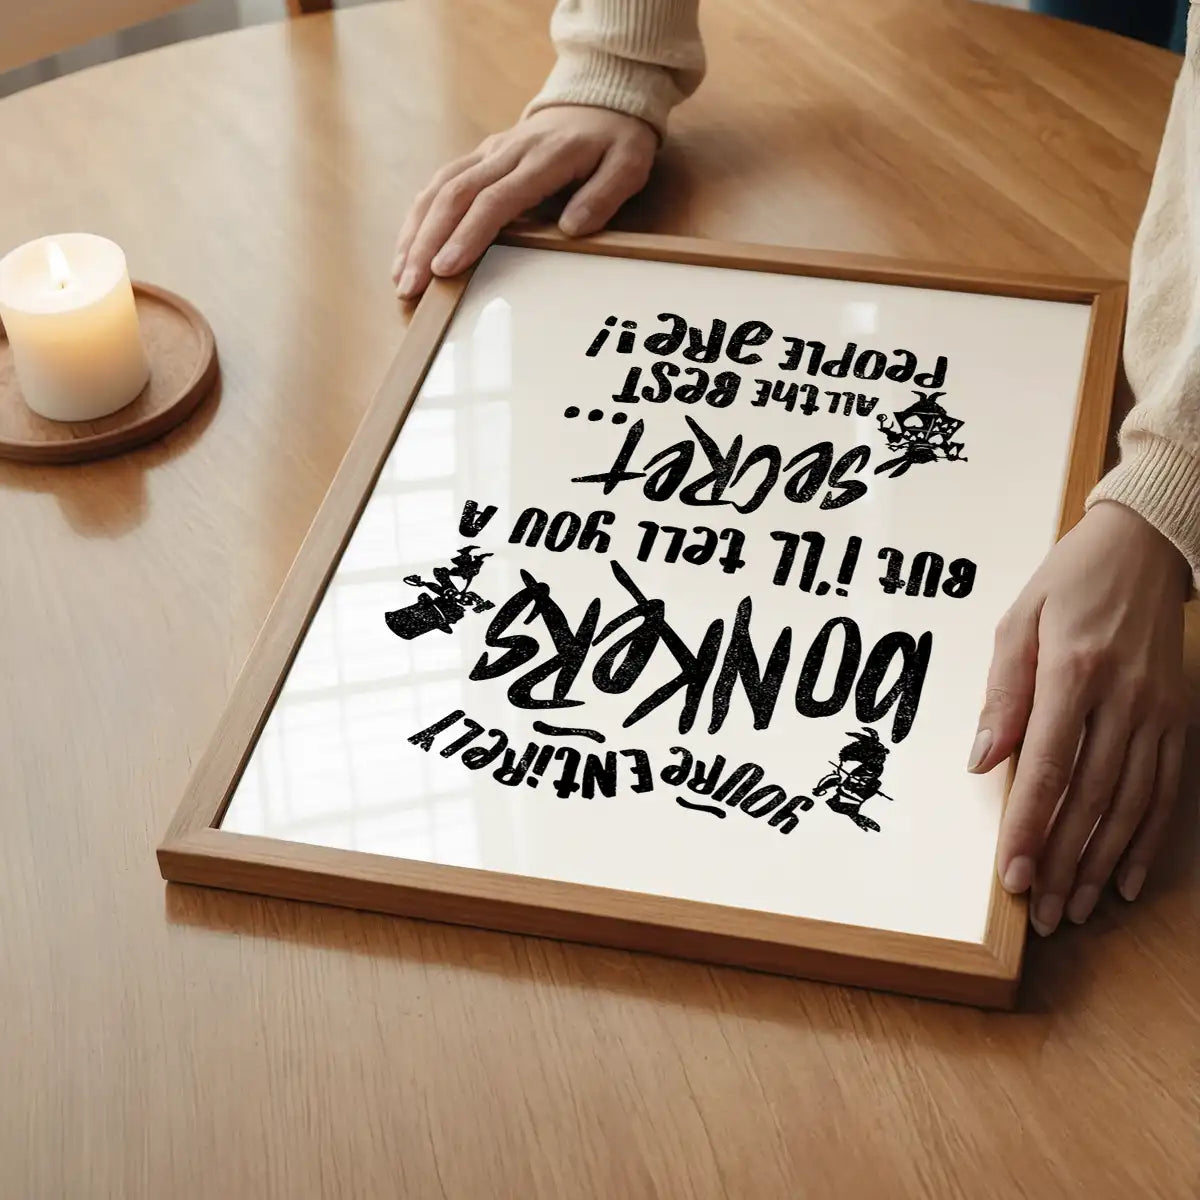 YOU'RE ENTIRELY
BONKERS
BUT I'LL TELL YOU A
SECRET...
ALL THE BEST
PEOPLE ARE!!